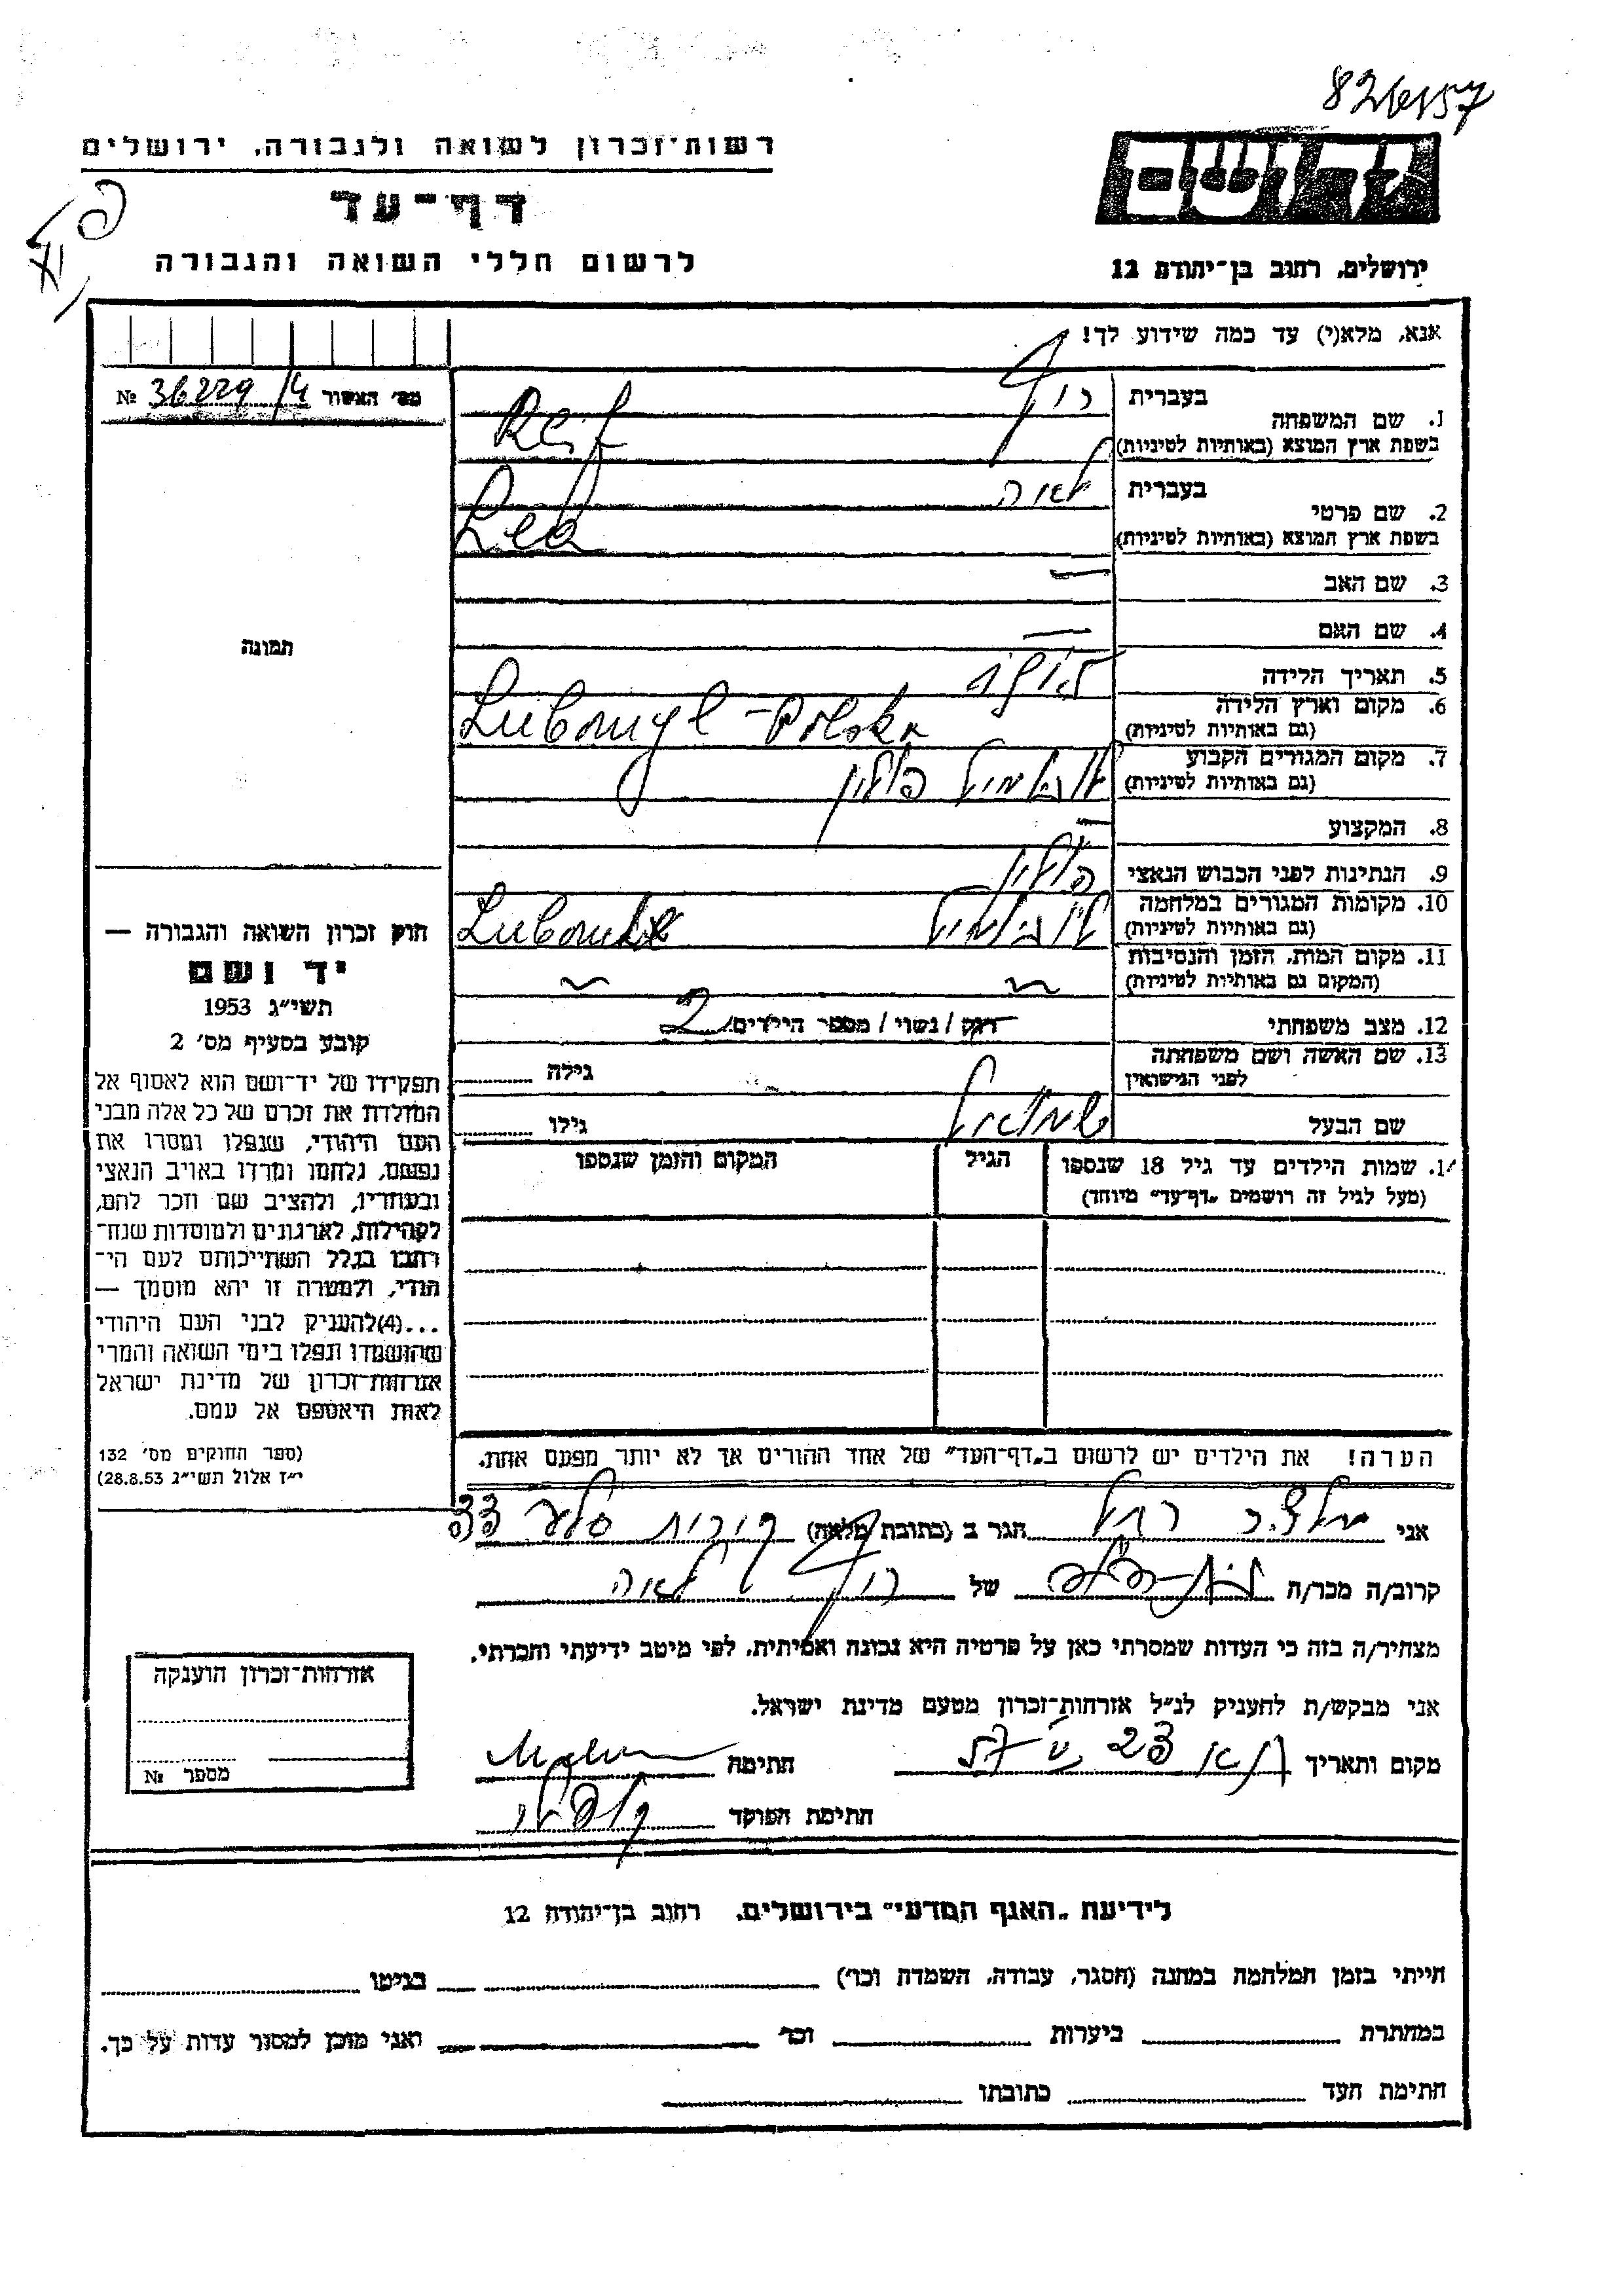 רשות־זכרון לשואה ולגבורה, ירושלים
דף־עד
לרשום חללי השואה והגבורה
ירושלים, רחוב בן־יהודה 12
אנא, מלא(י) עד כמה שידוע לך!
מס׳ האשור 36229/4 №
תמונה
1. שם המשפחה
בעברית רוף
בשפת ארץ המוצא (באותיות לטיניות) Reif
2. שם פרטי
בעברית לאה
בשפת ארץ המוצא (באותיות לטיניות) Lea
3. שם האב —
4. שם האם —
5. תאריך הלידה
6. מקום וארץ הלידה
(גם באותיות לטיניות) Lubomyl - Polska
7. מקום המגורים הקבוע
(גם באותיות לטיניות) לובומיל פולין
8. המקצוע —
9. הנתינות לפני הכבוש הנאצי פולין
10. מקומות המגורים במלחמה
(גם באותיות לטיניות) לובומיל
11. מקום המות, הזמן והנסיבות
(המקום גם באותיות לטיניות)
12. מצב משפחתי רוק / נשוי / מספר הילדים 2
13. שם האשה ושם משפחתה
לפני הנישואין
גילה
שם הבעל שמואל
גילו
14. שמות הילדים עד גיל 18 שנספו
(מעל לגיל זה רושמים „דף־עד” מיוחד)
הגיל
המקום והזמן שנספו
חוק זכרון השואה והגבורה —
יד ושם
תשי״ג 1953
קובע בסעיף מס׳ 2
תפקידו של יד־ושם הוא לאסוף אל
המולדת את זכרם של כל אלה מבני
העם היהודי, שנפלו ומסרו את
נפשם, נלחמו ומרדו באויב הנאצי
ובעוזריו, ולהציב שם וזכר להם,
לקהילות, לארגונים ולמוסדות שנח־
רבו בגלל השתייכותם לעם הי־
הודי, ולמטרה זו יהא מוסמך —
...(4)להעניק לבני העם היהודי
שהושמדו ונפלו בימי השואה והמרי
אזרחות־זכרון של מדינת ישראל
לאות היאספם אל עמם.
(ספר החוקים מס׳ 132
י״ז אלול תשי״ג 28.8.53)
הערה! את הילדים יש לרשום ב„דף־העד” של אחד ההורים אך לא יותר מפעם אחת.
אני רחל הגר ב (כתובת מלאה) קורות סלע 33
קרוב/ה מכר/ה של רוף לאה
מצהיר/ה בזה כי העדות שמסרתי כאן על פרטיה היא נכונה ואמיתית, לפי מיטב ידיעתי והכרתי.
אני מבקש/ת להעניק לנ״ל אזרחות־זכרון מטעם מדינת ישראל.
מקום ותאריך חתימה
חתימת הפוקד
אזרחות־זכרון הוענקה
מספר №
לידיעת „האגף המדעי” בירושלים, רחוב בן־יהודה 12
הייתי בזמן המלחמה במחנה (הסגר, עבודה, השמדה וכו׳) בגיטו
במחתרת ביערות וכו׳ ואני מוכן למסור עדות על כך.
חתימת העד כתובתו